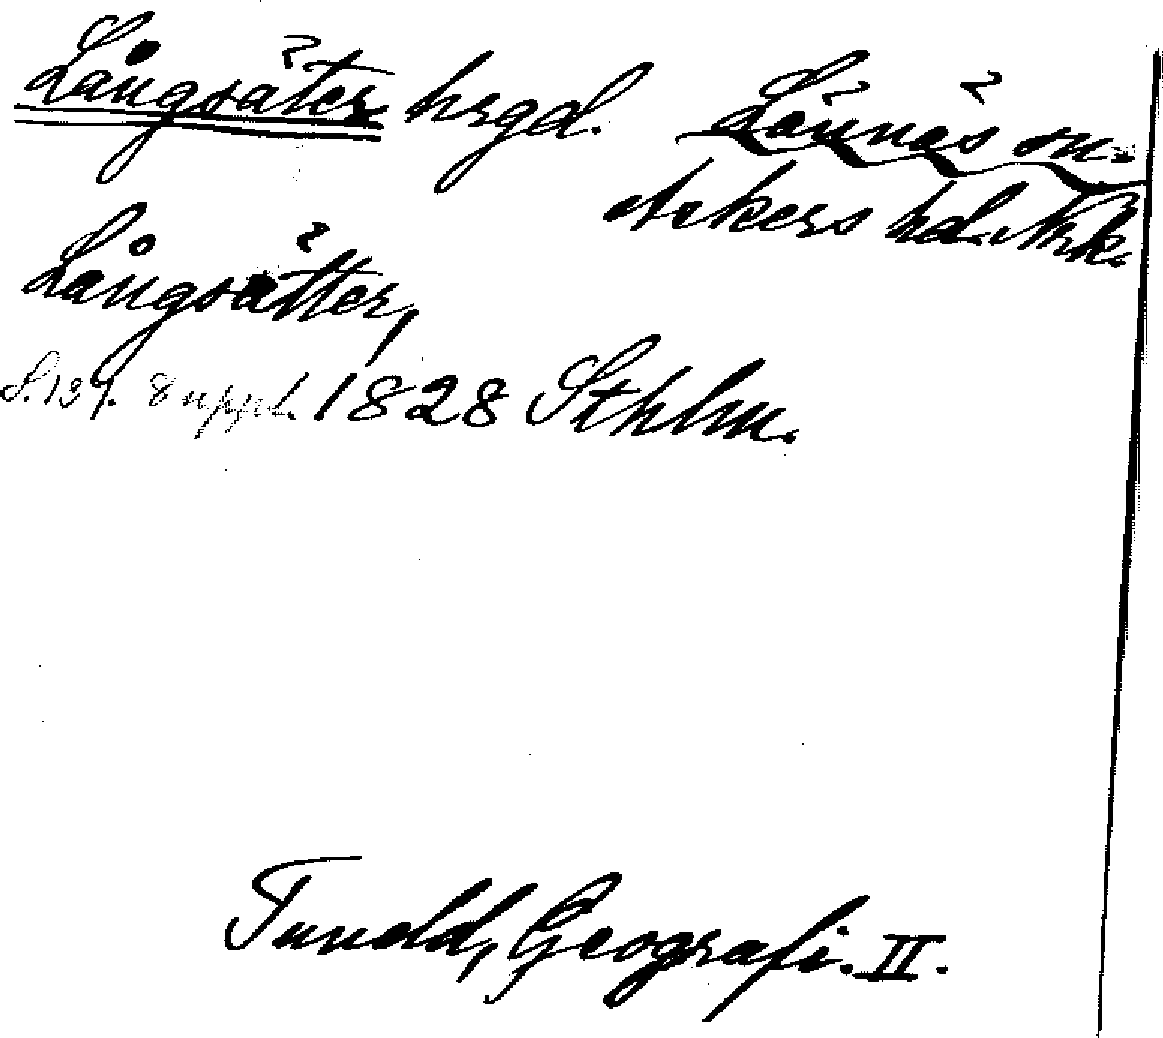 Långsäter hrgd. Lännäs sn.
Askers hd. Nrk.
Långsätter,
S. 137. 8 uppl. 1828 Sthlm.
Tuneld, Geografi. II.